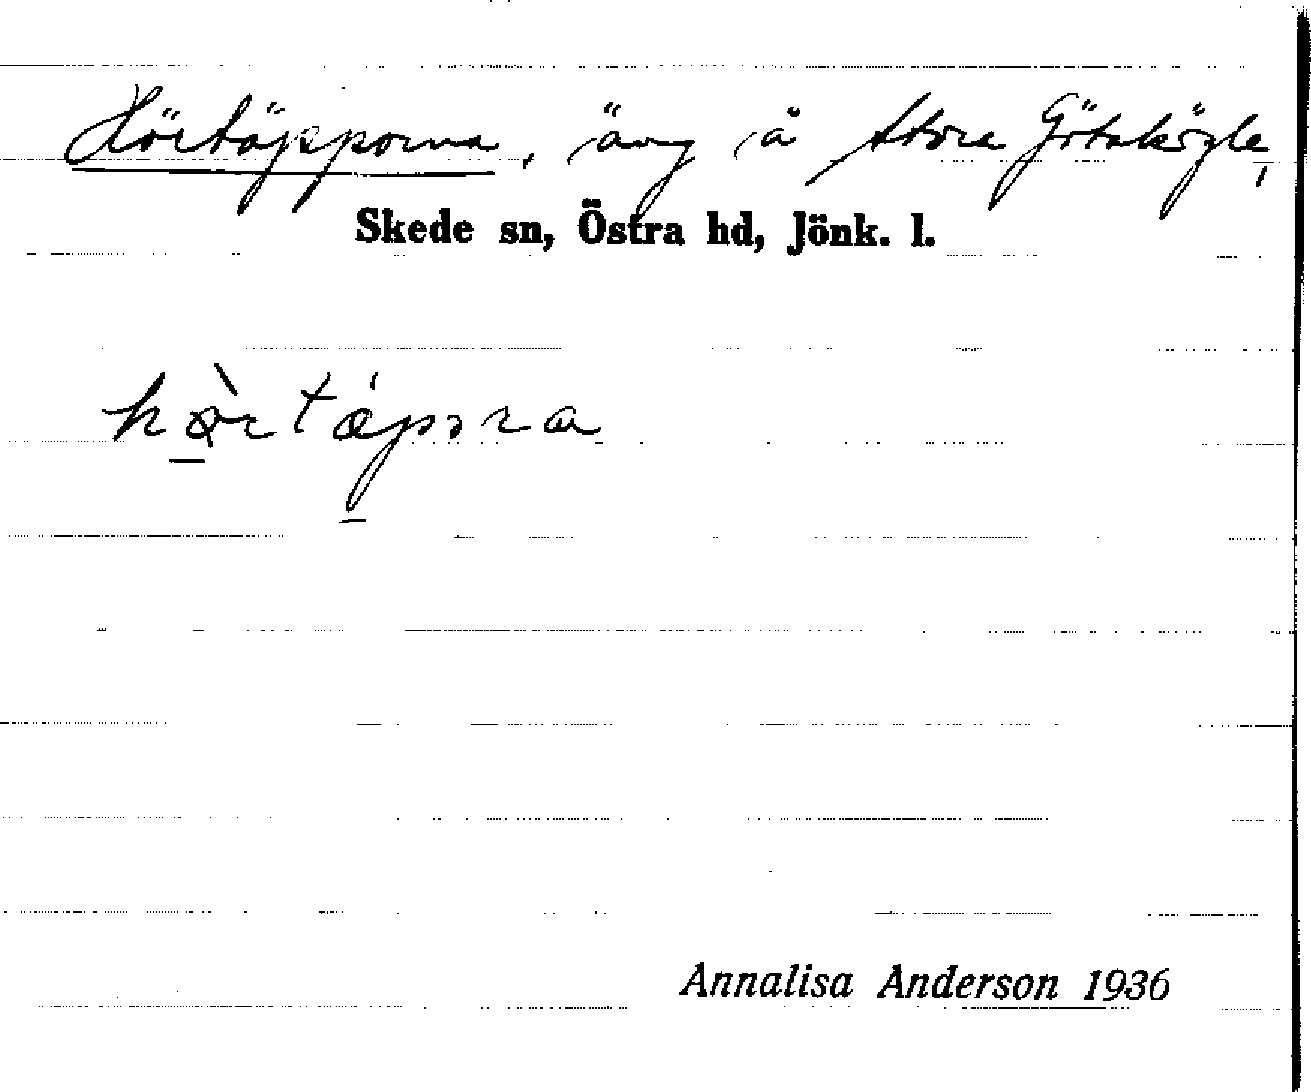 Hörtäpporna, äng å Stora Götaköple,
Skede sn, Östra hd, Jönk. l.
Annalisa Anderson 1936